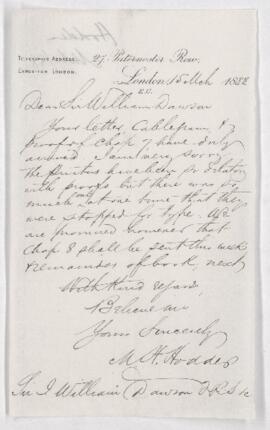 Hodder
TELEGRAPHIC ADDRESS:
LONDON.
27, Paternoster Row,
London 15 Mch 1888
E.C.
Dear Sir William Dawson
Your letter Cablegram &
proof of Chap 7 have only
arrived I am very sorry
the printers have been so dilatory
with proofs but there was so
much at one time that they
were stopped for type. We
are promised however that
Chap 8 shall be sent this week
& remainder of book next
With Kind regards
Believe me
Yours Sincerely
M H Hodder
Sir J William Dawson F.R.S &c